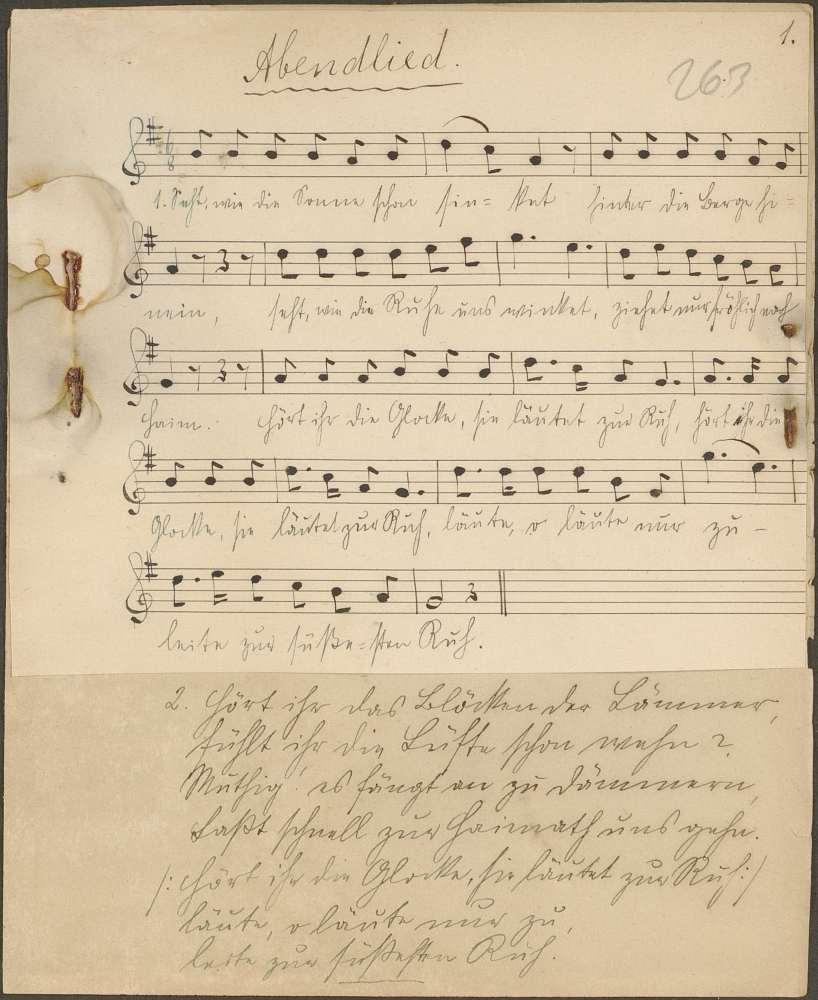 1.
Abendlied.
263
6
8
1. Seht, wie die Sonne schon sin= ket hinter die Berge hi=
nein, seht, wie die Ruhe uns winket, ziehet nur fröhlich nach
Heim. Hört ihr die Glocke, sie läutet zur Ruh, hört ihr die
Glocke, sie läutet zur Ruh, läute, o läute nur zu –
leite zur süße=sten Ruh.
2. Hört ihr das Blöcken der Lämmer,
fühlt ihr die Lüfte schon wehn?
Muthig! es fängt an zu dämmern,
Laßt schnell zur Heimath uns gehn.
/: Hört ihr die Glocke, sie läutet zur Ruh :/
läute, o läute nur zu,
leite zur süßesten Ruh.